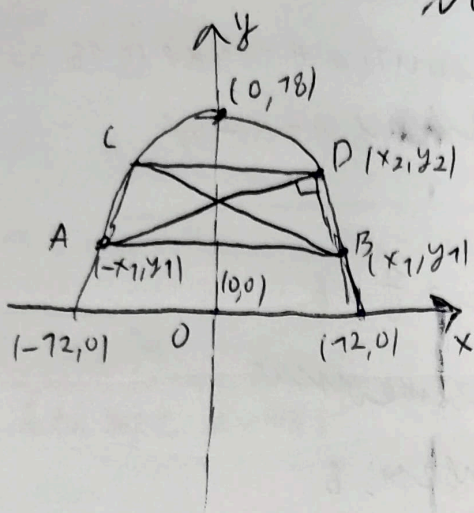 y
(0,18)
C
D (x2,y2)
A
B (x1,y1)
(-x1,y1)
(0,0)
(-12,0)
O
(12,0)
x